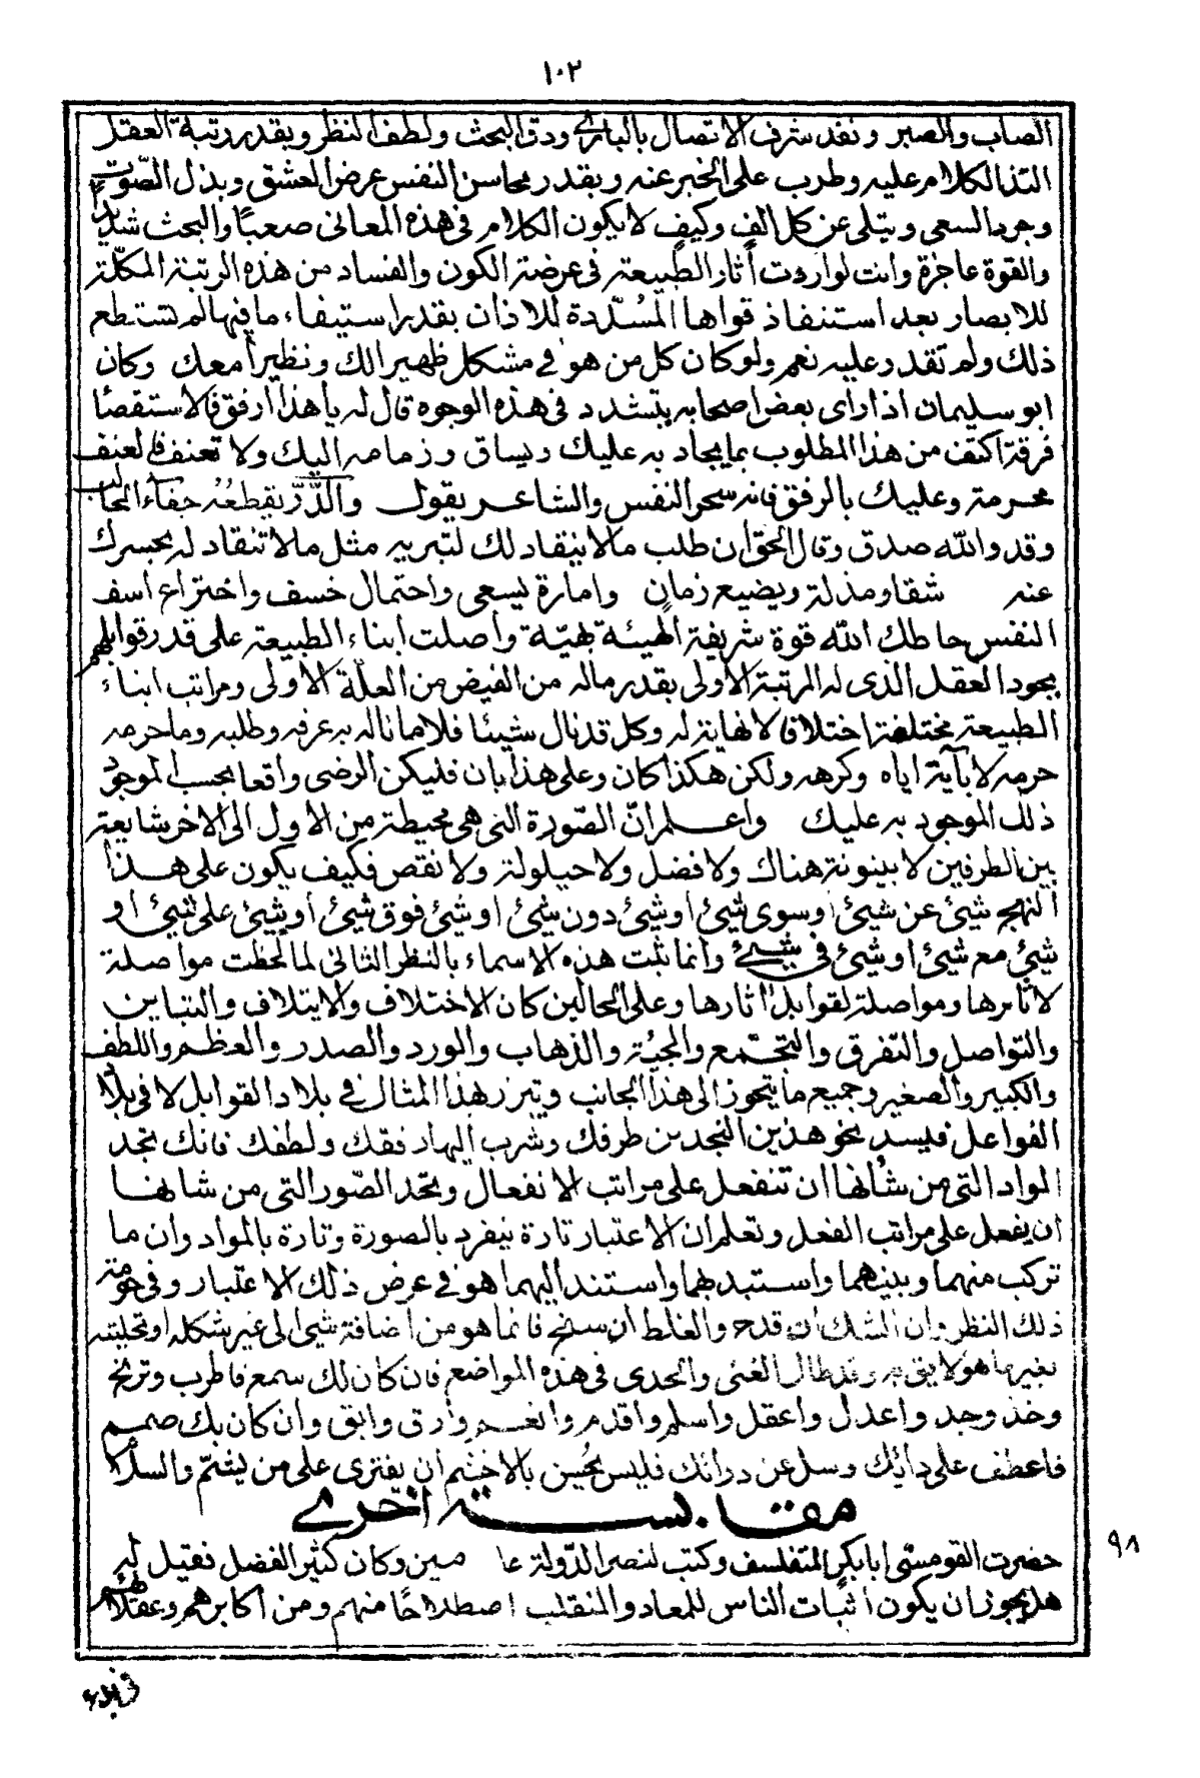 ١٠٢
الصاب والصبر ونفد شرف الاتصال بالباري ودق البحث ولطف النظر وبقدر رتبة العقل
التذ الكلام عليه وطرب على الخبر عنه وبقدر محاسن النفس عرض العشق وبذل الصوت
وجرد السعي وتبلى عن كل الف وكيف لا يكون الكلام في هذه المعاني صعبًا والبحث شديد
والقوة عاجزة وانت لو اردت أثار الطبيعة في عرضة الكون والفساد من هذه الرتبة المكلّة
للابصار بعد استنفاذ قواها المُسدّدة للاذان بقدر استيفاء ما فيها لم تستطع
ذلك ولم تقدر عليه نعم ولو كان كل من هو في مشكل ظهيرا لك ونظيرا معك وكان
ابو سليمان اذا راى بعض اصحابه يتشدد في هذه الوجوه قال له يا هذا ارفق فالاستقصا
فرقة اكتف من هذا المطلوب بما يجاد به عليك ويساق وزمامه اليك ولا تعنف فالعنف
محرمة وعليك بالرفق فانه سحر النفس والشاعر يقول والدَّرّ يقطعُهُ جفآء الحالب
وقد والله صدق وقال الحق ان طلب مالا ينقاد لك لتبريه مثل مالا تنقاد له بحسرك
عنه شقا ومذلة ويضيع زمان وامارة يسعى واحتمال خسف واختراع اسف
النفس حاطك الله قوة شريفة الهيئة بهيّة واصلت ابناء الطبيعة على قدر قوابلهم
بجود العقل الذى له المرتبة الاولى بقدر ماله من الفيض من العلّة الاولى ومراتب ابناء
الطبيعة مختلفة اختلافا لا نهاية له وكل قد نال شيئا فلا ما ناله به عرفه وطلبه وما حرمه
حرمه لا بآية اياه وكرهه ولكن هكذا كان وعلى هذا بان فليكن الرضى واقعا بحسب الموجود
ذلك الموجود به عليك واعلم انّ الصّورة التى هى محيطة من الاول الى الاخر شايعة
بين الطرفين لا بينونة هناك ولا فضل ولا حيلولة ولا نقص فكيف يكون على هذا
النهج شيئ عن شيئ او سوى شيئ او شيئ دون شيئ او شيئ فوق شيئ او شيئ على شيئ او
شيئ مع شيئ او شيئ في شيئ وانما ثبت هذه الاسماء بالنظر الثانى لما لحظت مواصلة
لاثارها ومواصلة لقوابل اثارها وعلى الحالين كان الاختلاف والايتلاف والتباين
والتواصل والتفرق والتجمّع والمجيئة والذهاب والورد والصدر والعظم واللطف
والكبير والصغير وجميع ما يتحوز الى هذا الجانب وتبرز هذا المثال في بلاد القوابل لا في بلاد
الفواعل فليسد نحو هذين النجدين طرفك وشرب اليهاد فقك ولطفك فانك تجد
المواد التى من شأنها ان تنفعل على مراتب الانفعال وتجد الصّور التى من شانها
ان يفعل على مراتب الفعل وتعلم ان الاعتبار تارة ينفرد بالصورة وتارة بالمواد وان ما
تركب منهما وبينهما واستبد بهما واستند اليهما هو في عرض ذلك الاعتبار وفي حومة
ذلك النظر وان الشك ان قدح والغلط ان سنح فانما هو من اضافة شى الى غير شكله او تحليته
بغير ما هو لايق به وقد طال الغنى والحدى في هذه المواضع فان كان لك سمع فاطرب وترنح
وخذ وجد واعدل واعقل واسلم واقدم وانعم وارق وابق وان كان بك صمم
فاعطف على دائك وسل عن دوائك فليس يحسن بالاخشم ان يفترى على من يشتّم والسلام
مقابسة اخرى
حضرت القومسى ابا بكر المتفلسف وكتب لنصر الدّولة عا مين وكان كثير الفضل فقيل له
هل يجوز ان يكون اثبات الناس للمعاد والمنقلب اصطلاحًا منهم ومن اكابرهم وعقلائهم
٩٨